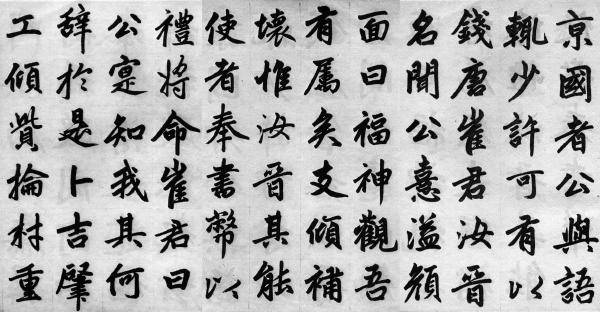 京國者公與語
輒少許可有以
錢唐崔君汝晉
名聞公憙溢顏
面曰福神觀吾
有属矣支傾補
壞惟汝晉其能
使者奉書幣以
禮將命崔君曰
公寔知我其何
辭於是卜吉肇
工傾貲掄材重